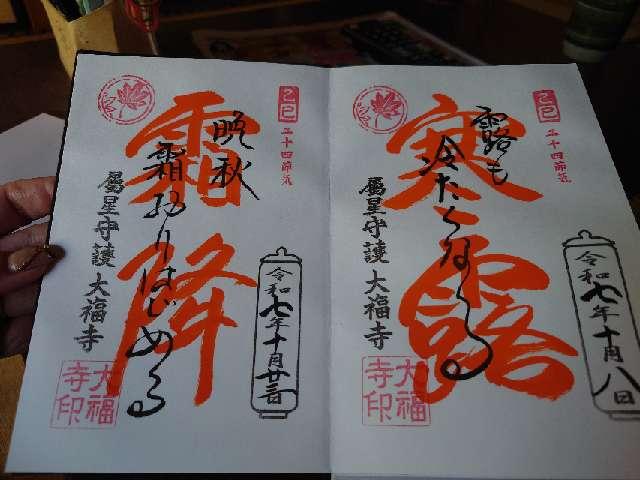 乙巳
二十四節気
寒露
露も
冷たくなる
属星守護 大福寺
令和七年十月八日
大福寺印
乙巳
二十四節気
霜降
晩秋
霜ふりはじめる
属星守護 大福寺
令和七年十月廿三日
大福寺印